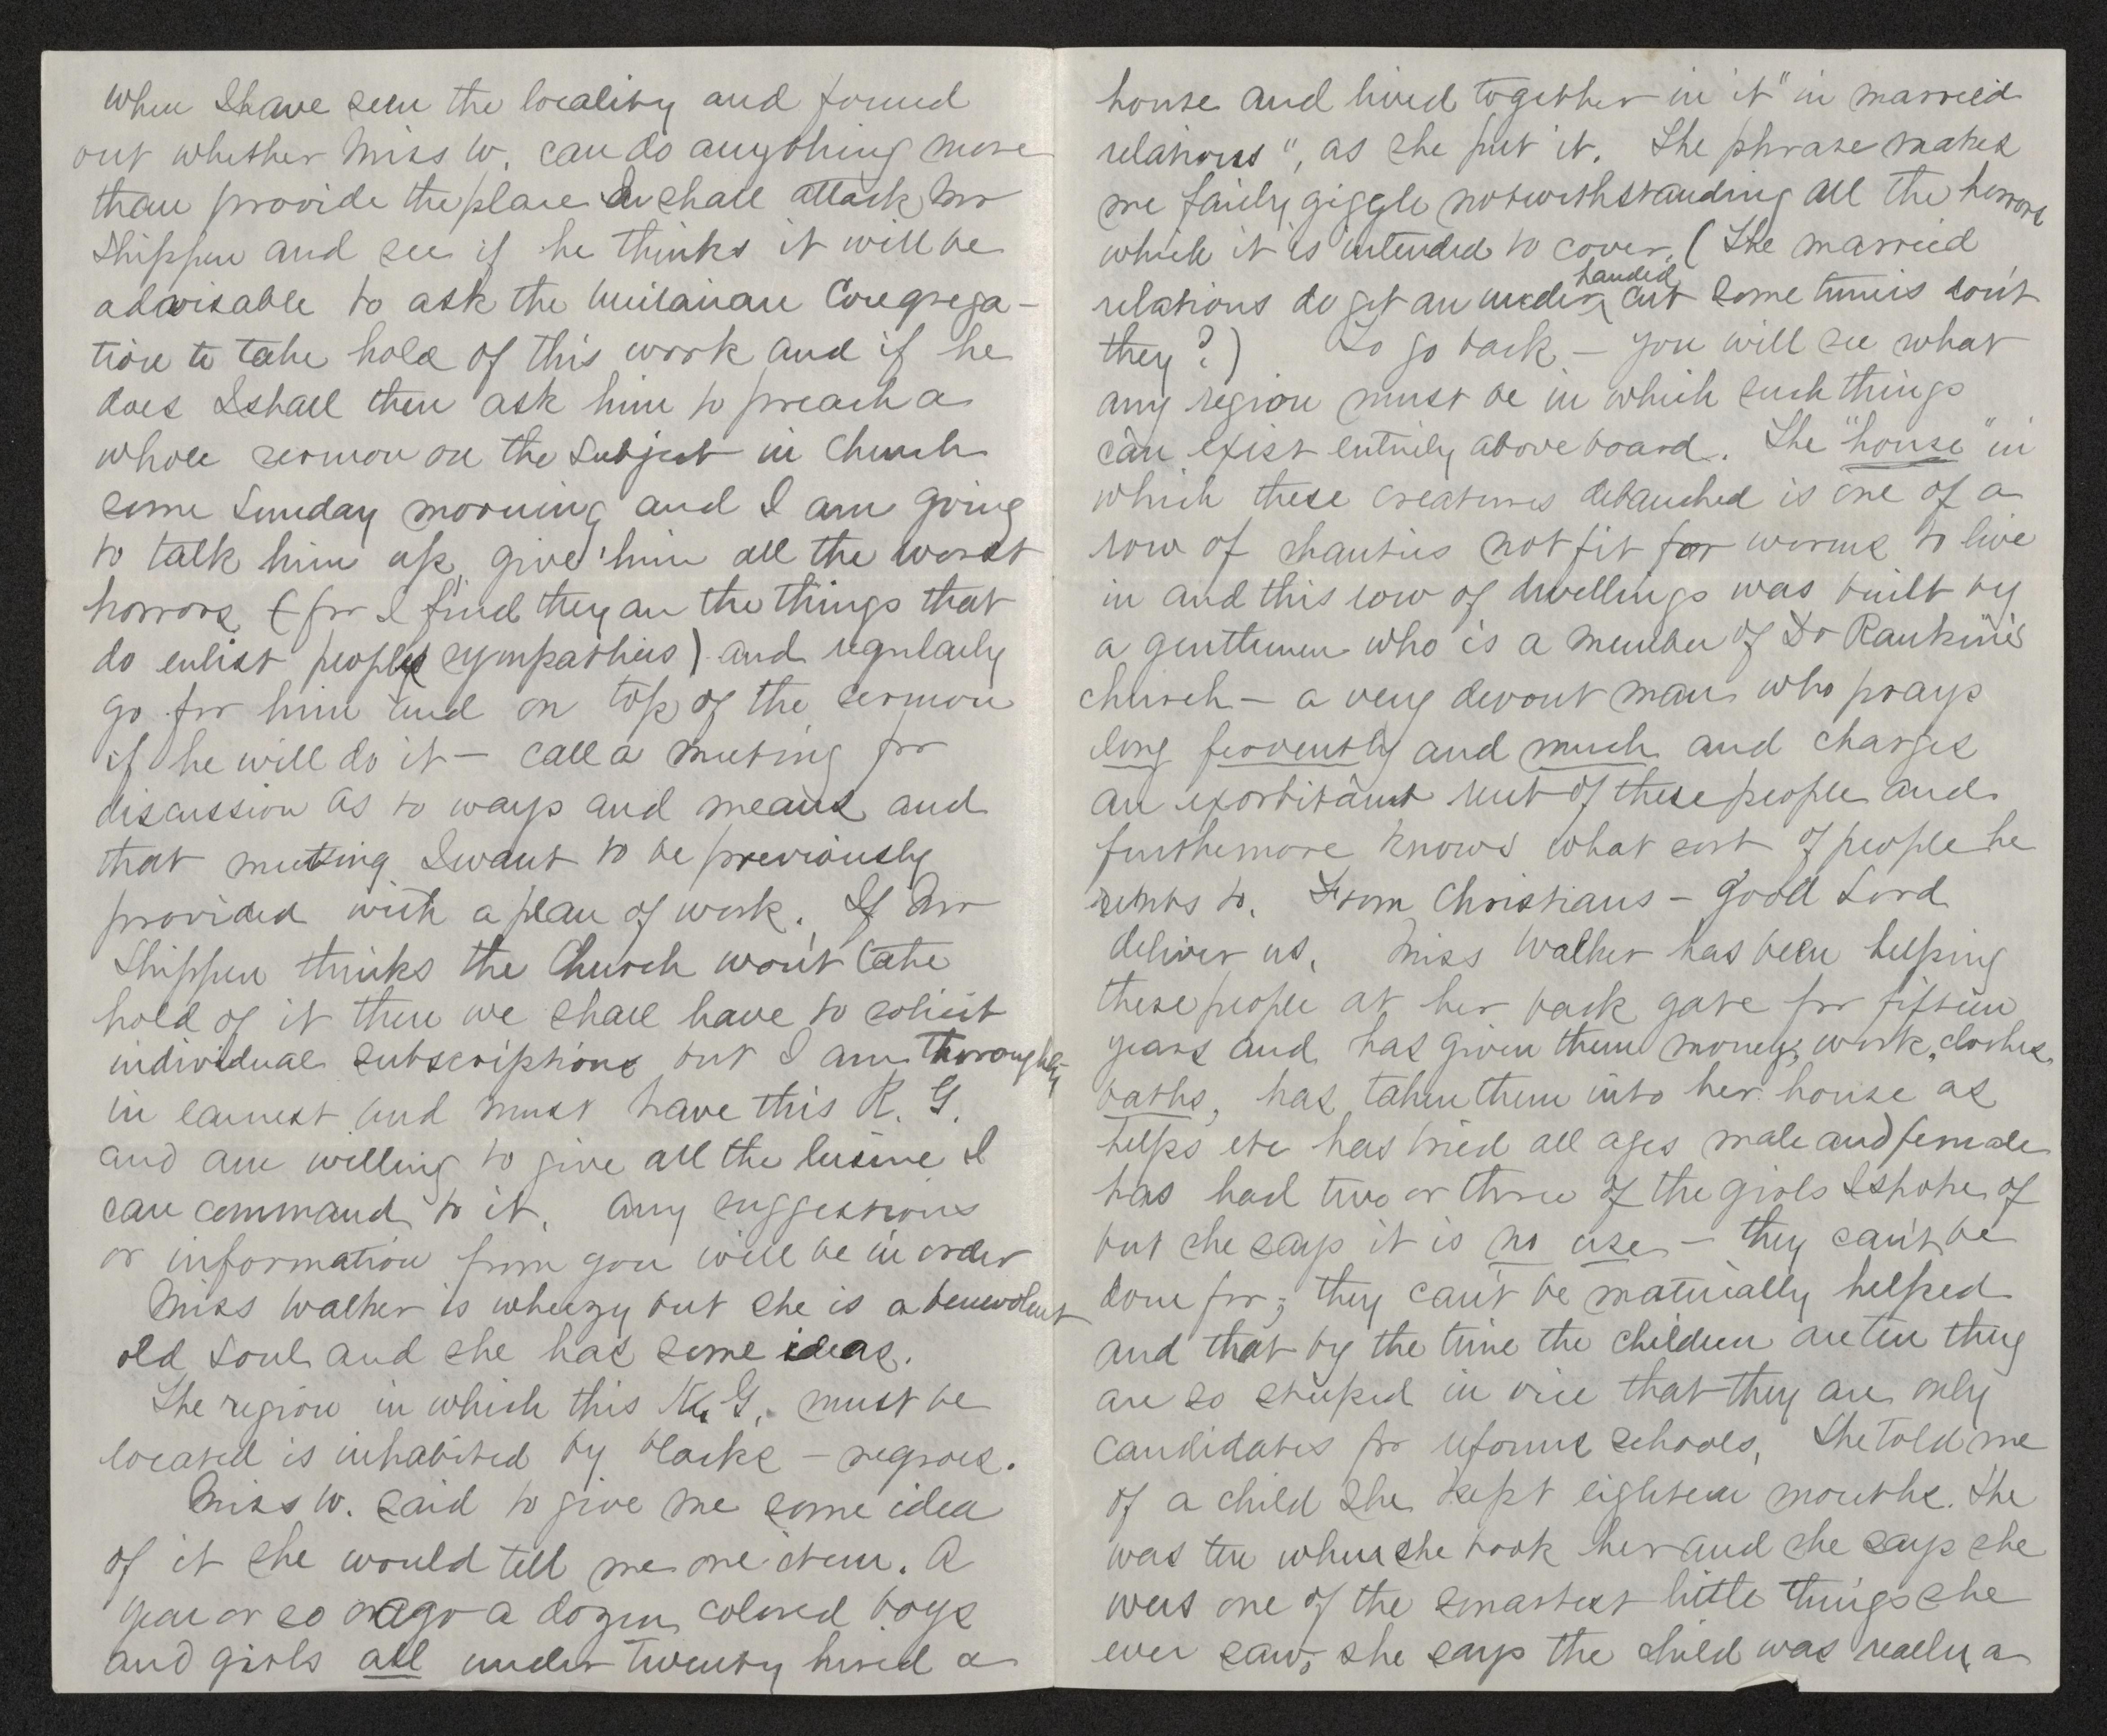 when I have seen the locality and found
out whether Miss W. can do anything more
than provide the place I shall attack Mr
Shippen and see if he thinks it will be
advisable to ask the Unitarian Congrega-
tion to take hold of this work and if he
does I shall then ask him to preach a
whole sermon on the subject in Church
some Sunday morning and I am going
to talk him up, give him all the worst
horrors (for I find they are the things that
do enlist peoples sympathies) and regularly
go for him and on top of the sermon
if he will do it — call a meeting for
discussion as to ways and means and
that meeting I want to be previously
provided with a plan of work. If Mr
Shippen thinks the Church won't take
hold of it then we shall have to solicit
individual subscriptions but I am thoroughly
in earnest and must have this K. G.
and am willing to give all the leisure I
can command to it. Any suggestions
or information from you will be in order
Miss Walker is wheezy but she is a benevolent
old soul and she has some ideas.
The region in which this K. G. must be
located is inhabited by blacks — negroes.
Miss W. said to give me some idea
of it she would tell me one item. A
year or so ago a dozen colored boys
and girls all under twenty hired a
house and lived together in it "in married
relations", as she put it. The phrase makes
me fairly giggle notwithstanding all the horrors
which it is intended to cover. (The married
relations do get an under handed cut some times don't
they?) To go back — you will see what
any region must be in which such things
can exist entirely above board. The "house" in
which these creatures debauched is one of a
row of shanties not fit for worms to live
in and this row of dwellings was built by
a gentlemen who is a member of Dr Rankin's
church — a very devout man who prays
long fervently and much and charges
an exorbitant rent of these people and
furthermore knows what sort of people he
rents to. From Christians — Good Lord
deliver us. Miss Walker has been helping
these people at her back gate for fifteen
years and has given them money, work, clothes,
baths, has taken them into her house as
helps etc has tried all ages male and female
has had two or three of the girls I spoke of
but she says it is no use — they can't be
done for; they can't be materially helped
and that by the time the children are ten they
are so steeped in vice that they are only
candidates for reform schools. She told me
of a child she kept eighteen months. She
was ten when she took her and she says she
was one of the smartest little things she
ever saw, she says the child was really a